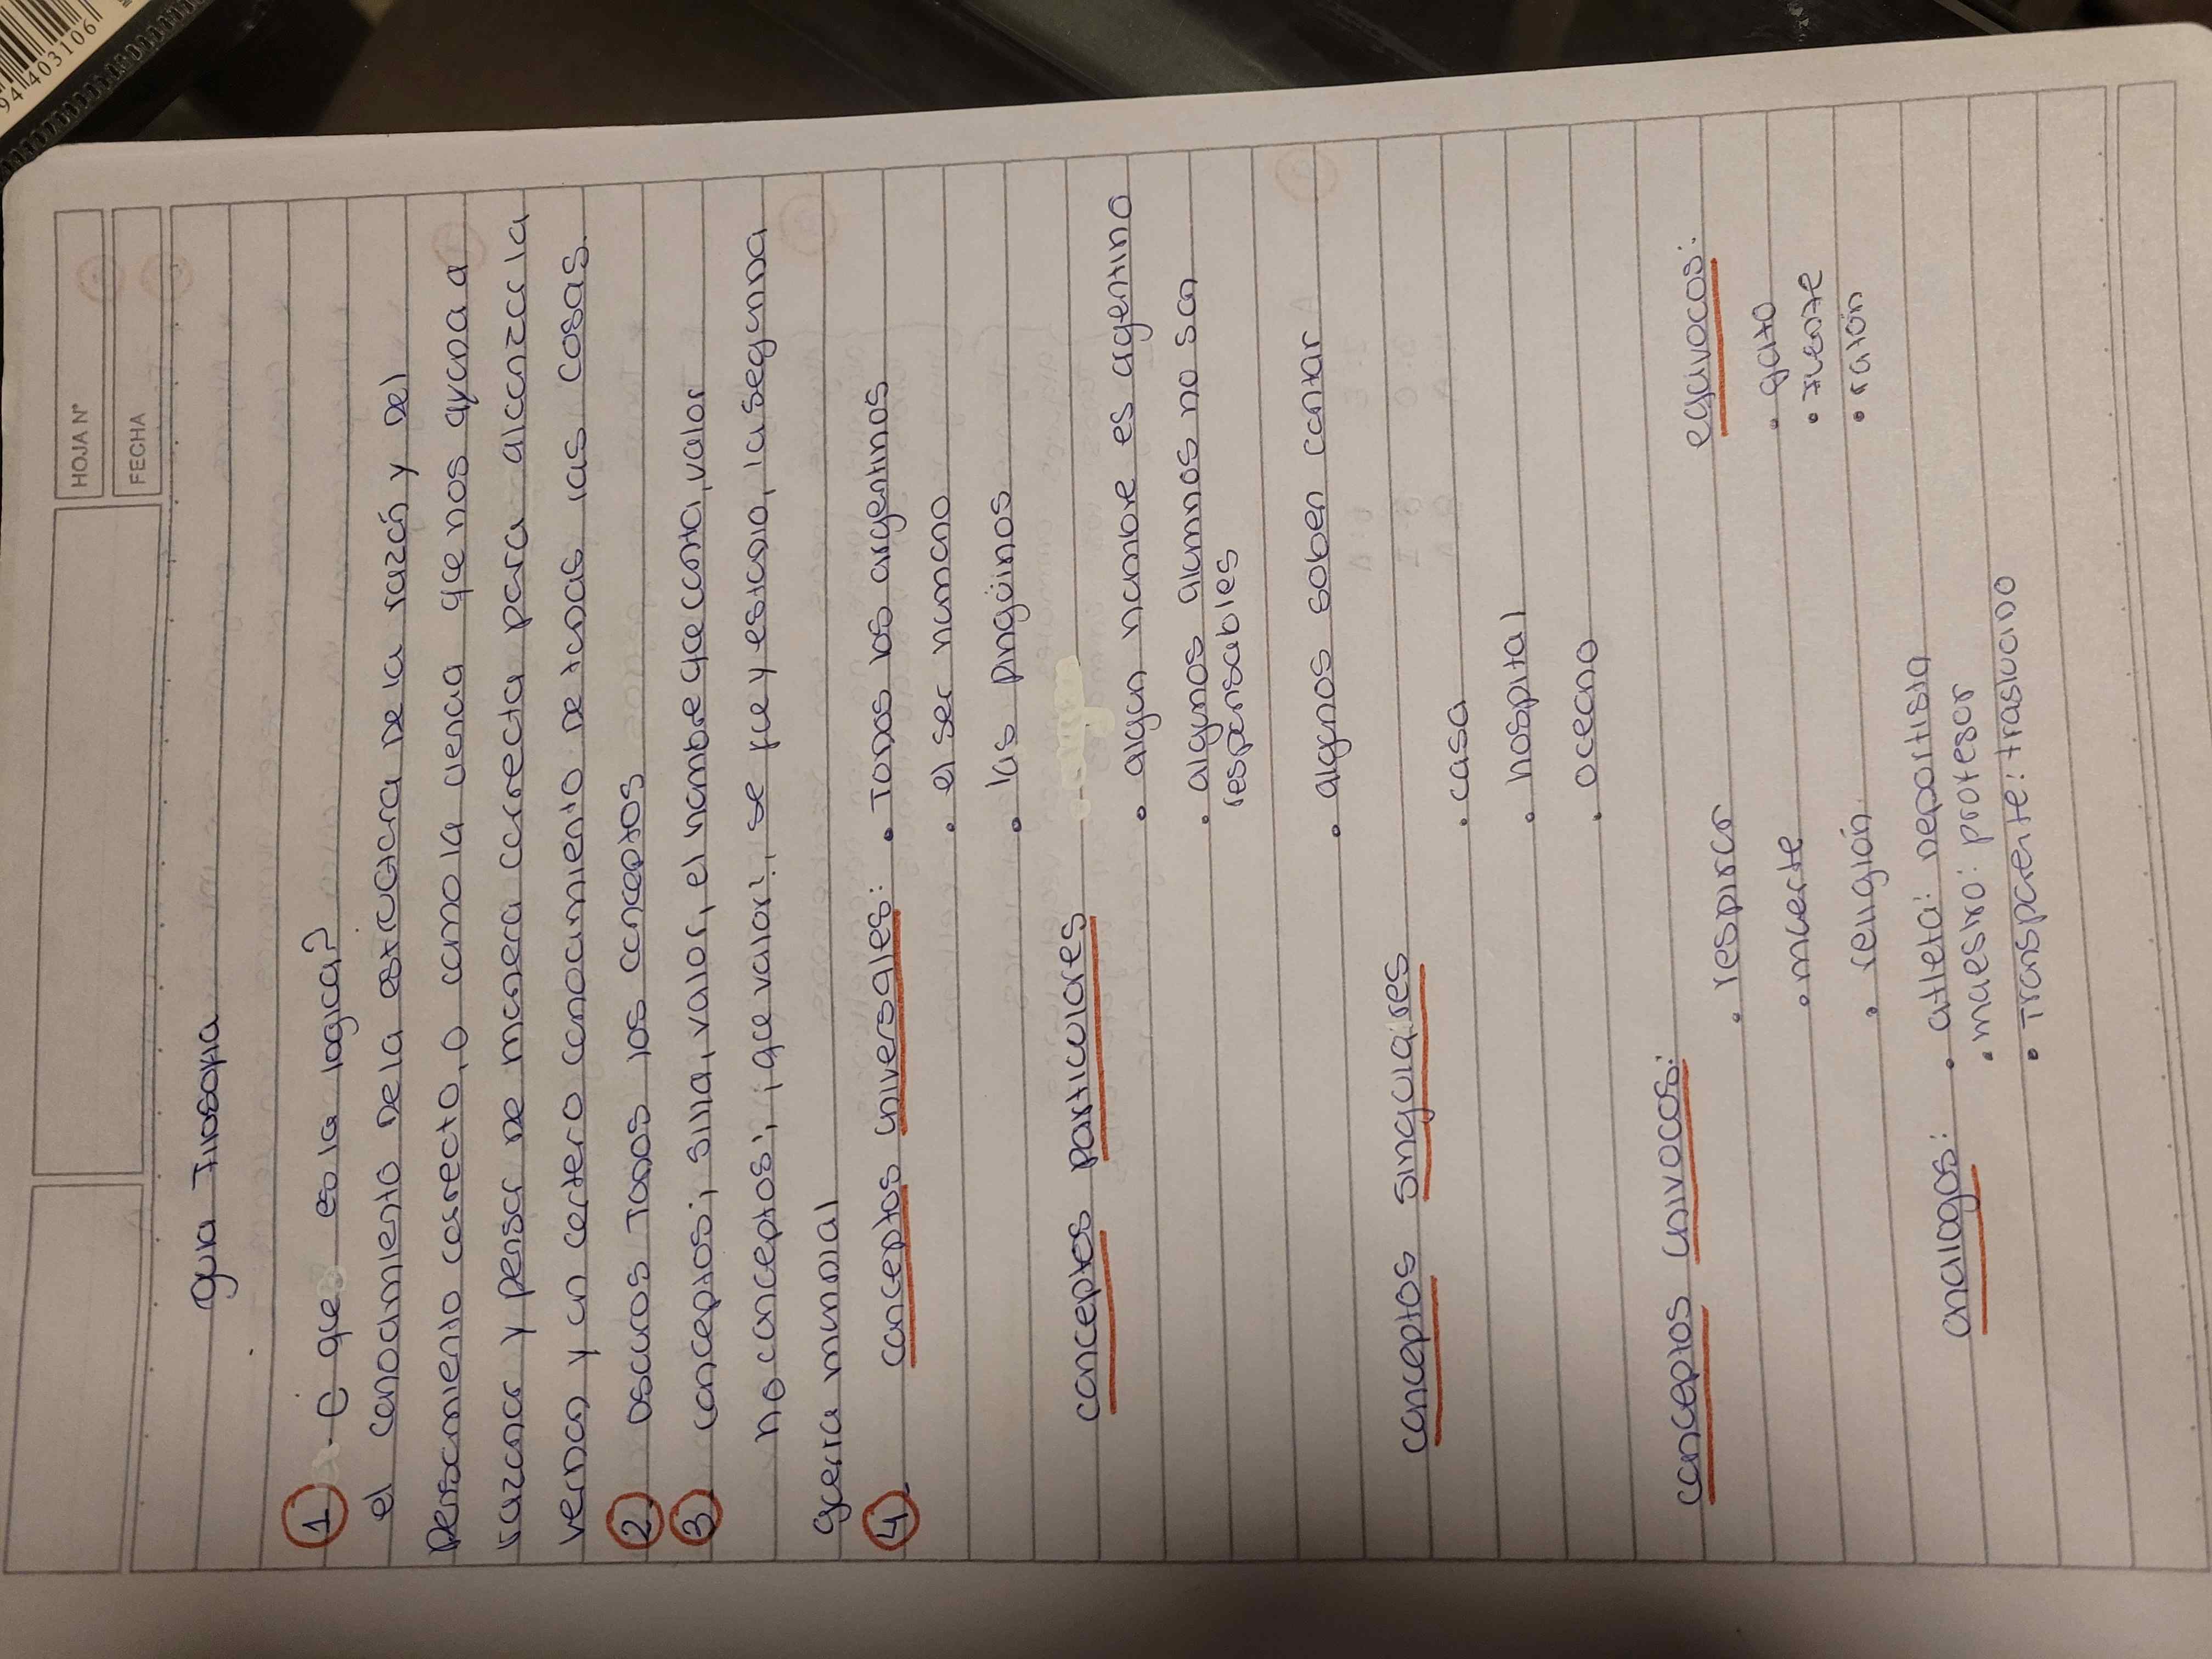 94403106
HOJA Nº
FECHA
guia Filosofia
1 ¿ que es la logica?
el conocimiento de la estructura de la razón y del
Pensamiento correcto, o como la ciencia que nos ayuda a
razonar y pensar de manera correcta para alcanzar la
verdad y un certero conocimiento de todas las cosas.
2 oscuros Todos los conceptos
3 conceptos:, silla, valor, el hombre que canta, valor
no conceptos:, ¡que valor!, se fue y estudio, la segunda
guerra mundial
4. conceptos universales: • Todos los argentinos
• el ser humano
• las pingüinos
conceptos particulares
• algun hombre es argentino
• algunos alumnos no son
responsables
• algunos saben cantar
conceptos singulares
• casa
• hospital
• oceano
conceptos univocos: equivocos:
• respirar • gato
• muerte • fuente
• religión • ratón
analogos: • atleta: deportista
• maestro: profesor
• Transparente: traslucido